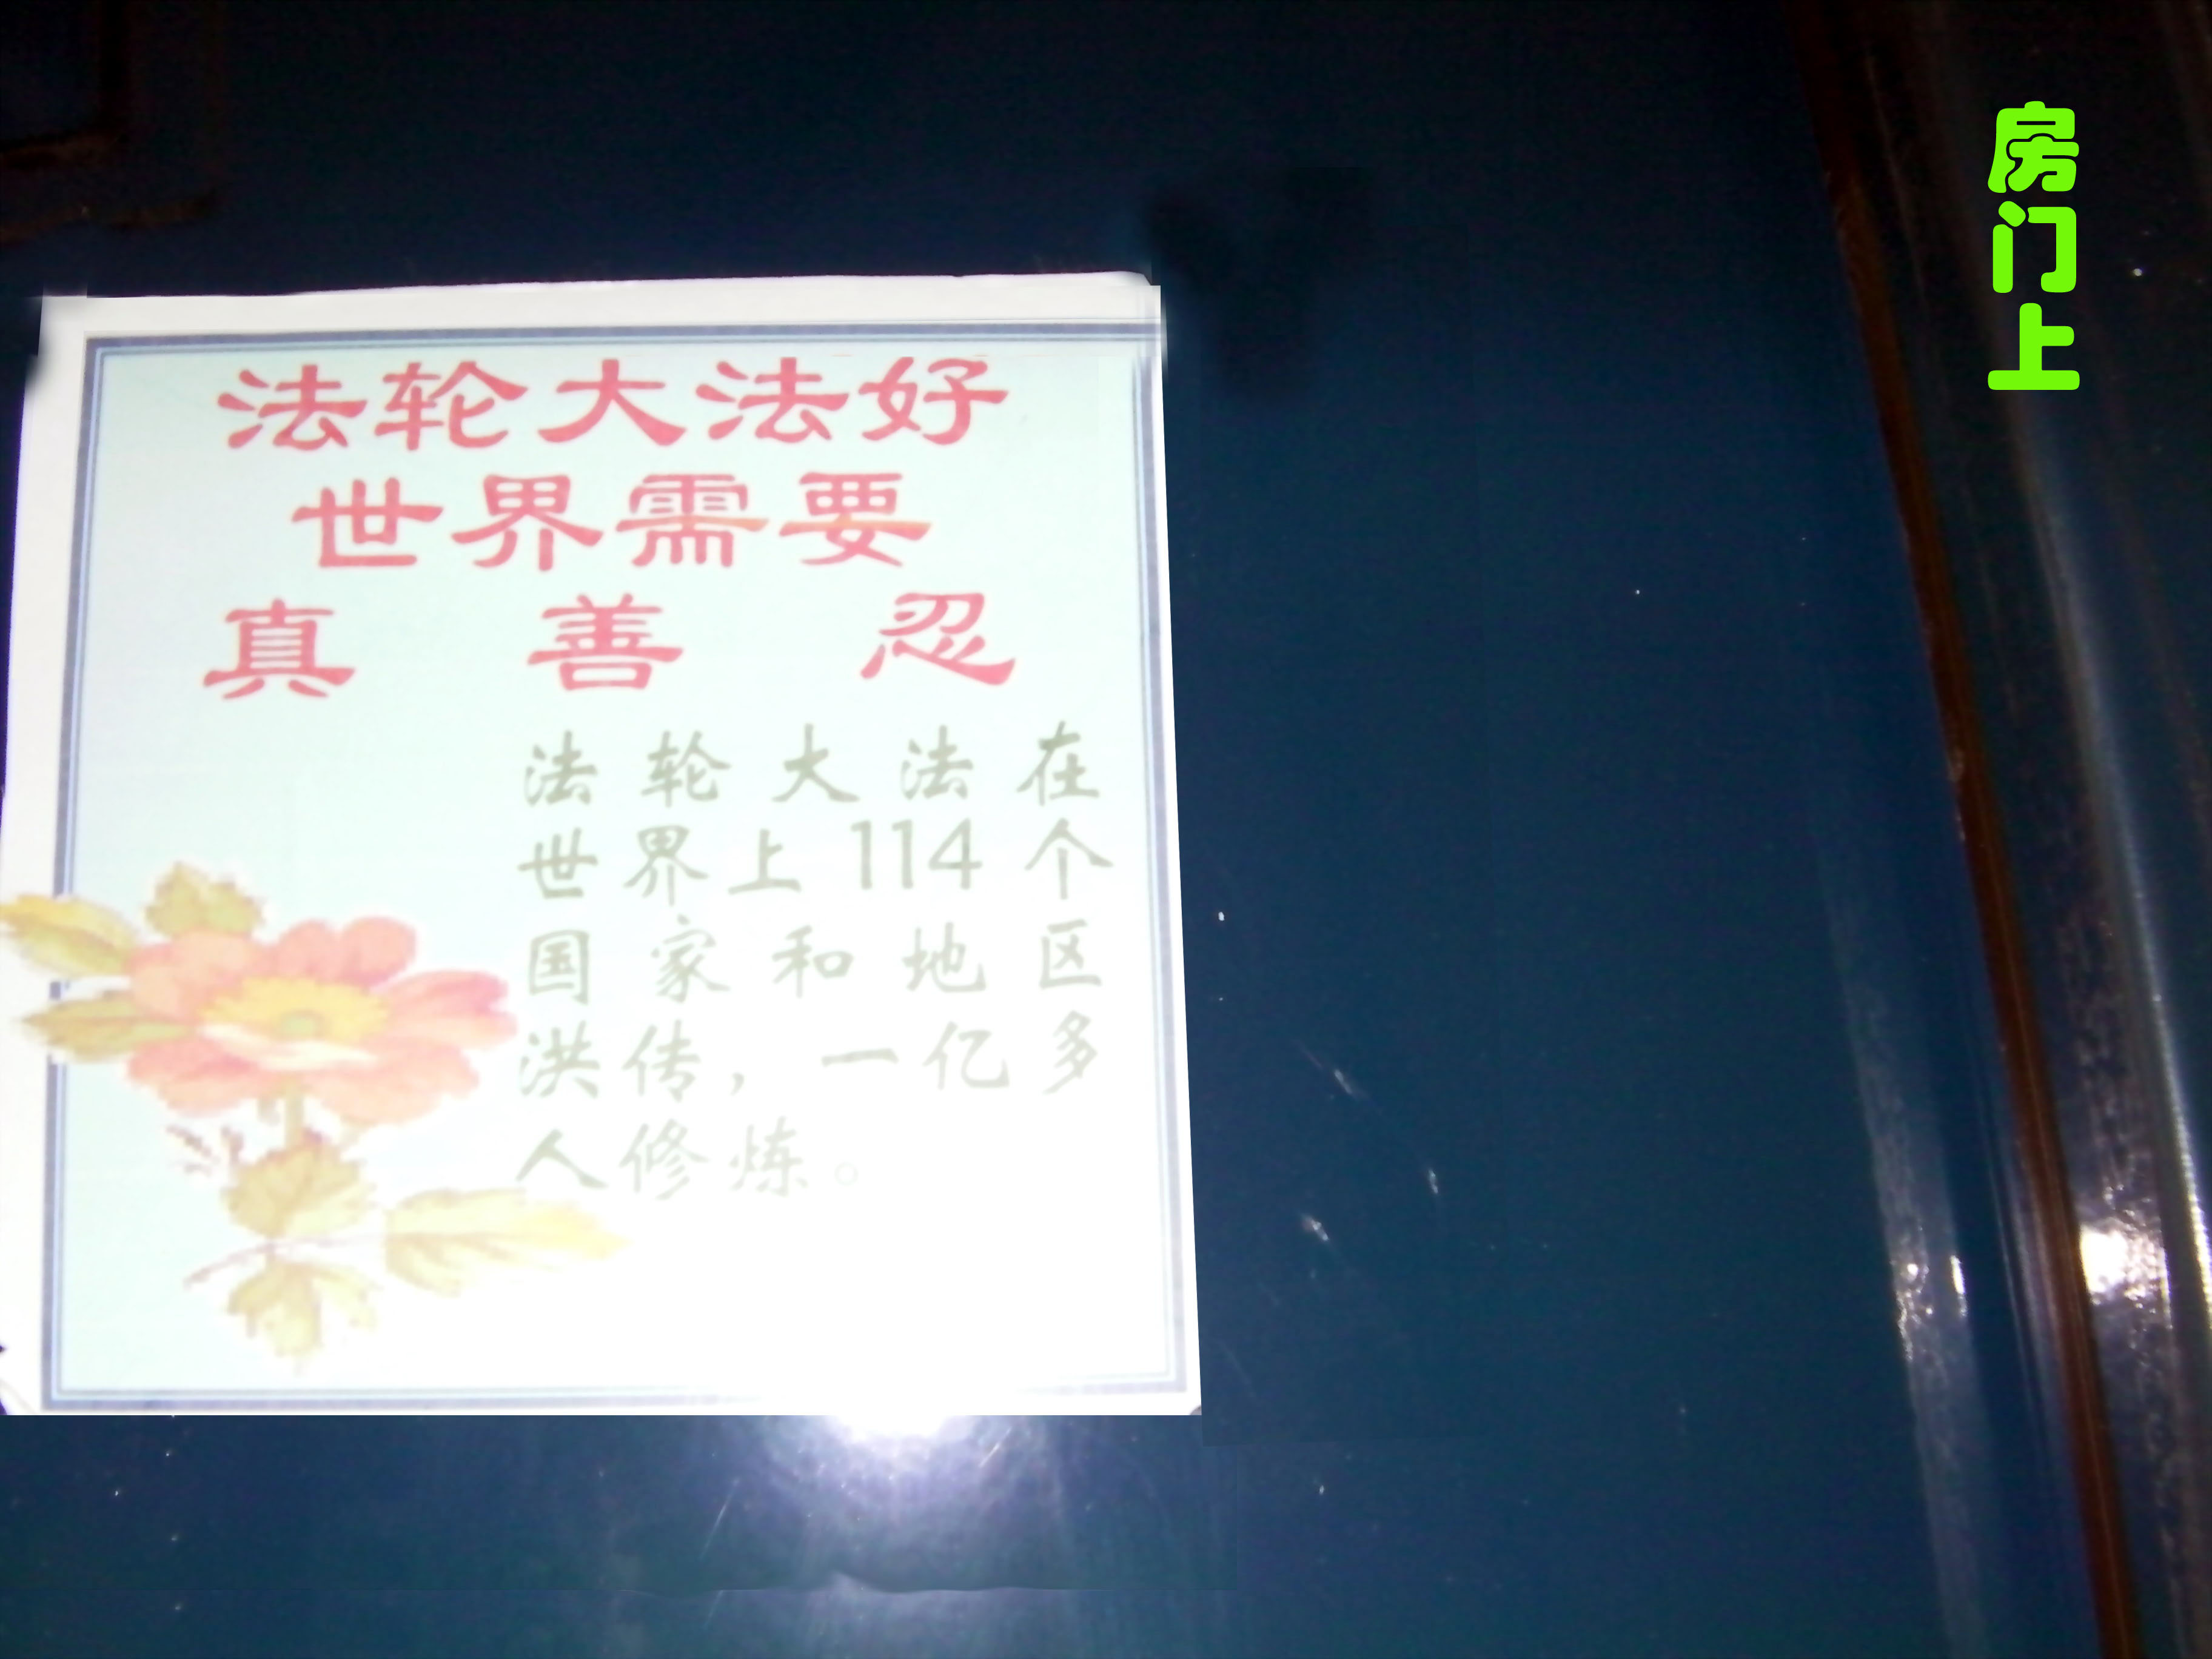 法轮大法好
世界需要
真 善 忍
法轮大法在
世界上114个
国家和地区
洪传，一亿多
人修炼。
房门上